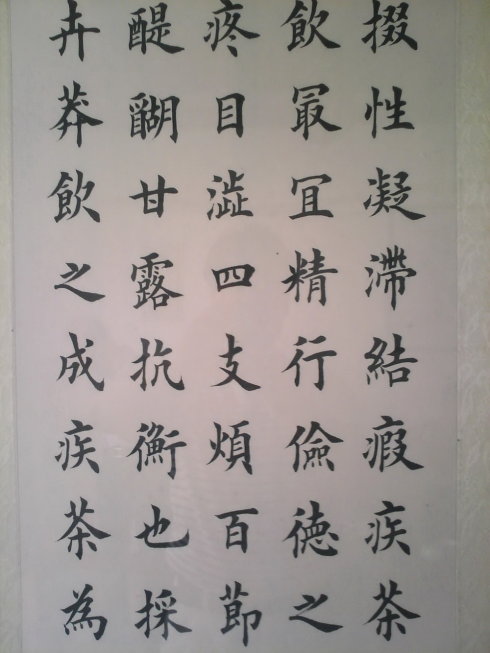 掇性凝滯結瘕疾茶
飲最冝精行儉德之
疼目澁四支煩百節
醍醐甘露抗衡也採
卉莽飲之成疾茶為